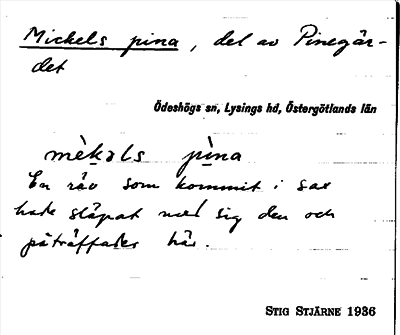 Mickels pina, del av Pinegär-
det
Ödeshögs sn, Lysings hd, Östergötlands län
mèkəls pìna
En räv som kommit i sax
hade släpat med sig den och
påträffades här.
STIG STJÄRNE 1936